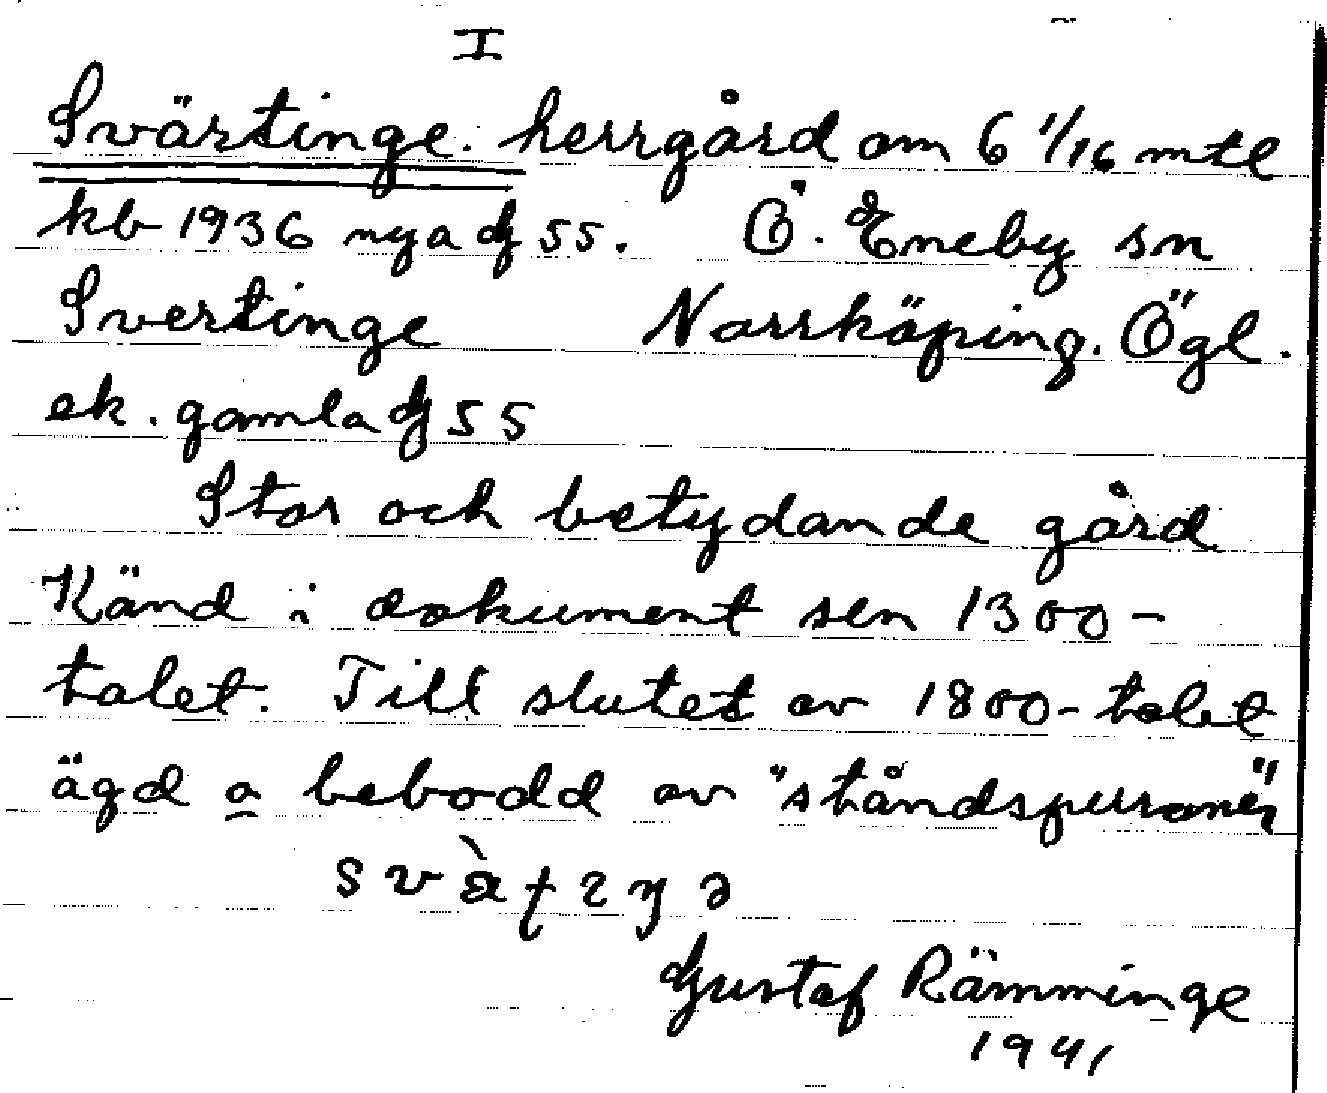 I
Svärtinge. herrgård om 6 1/16 mtl
kb 1936 nya dz 55. Ö. Eneby sn
Svertinge Norrköping. Ögl.
ek. gamla dz 55
Stor och betydande gård
Känd i dokument sen 1300-
talet. Till slutet av 1800-talet
ägd o bebodd av "ståndspersoner"
Gustaf Rämminge
1941